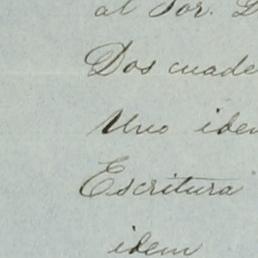 al Sor. D
Dos cuade
Uno iden
Escritura
idem